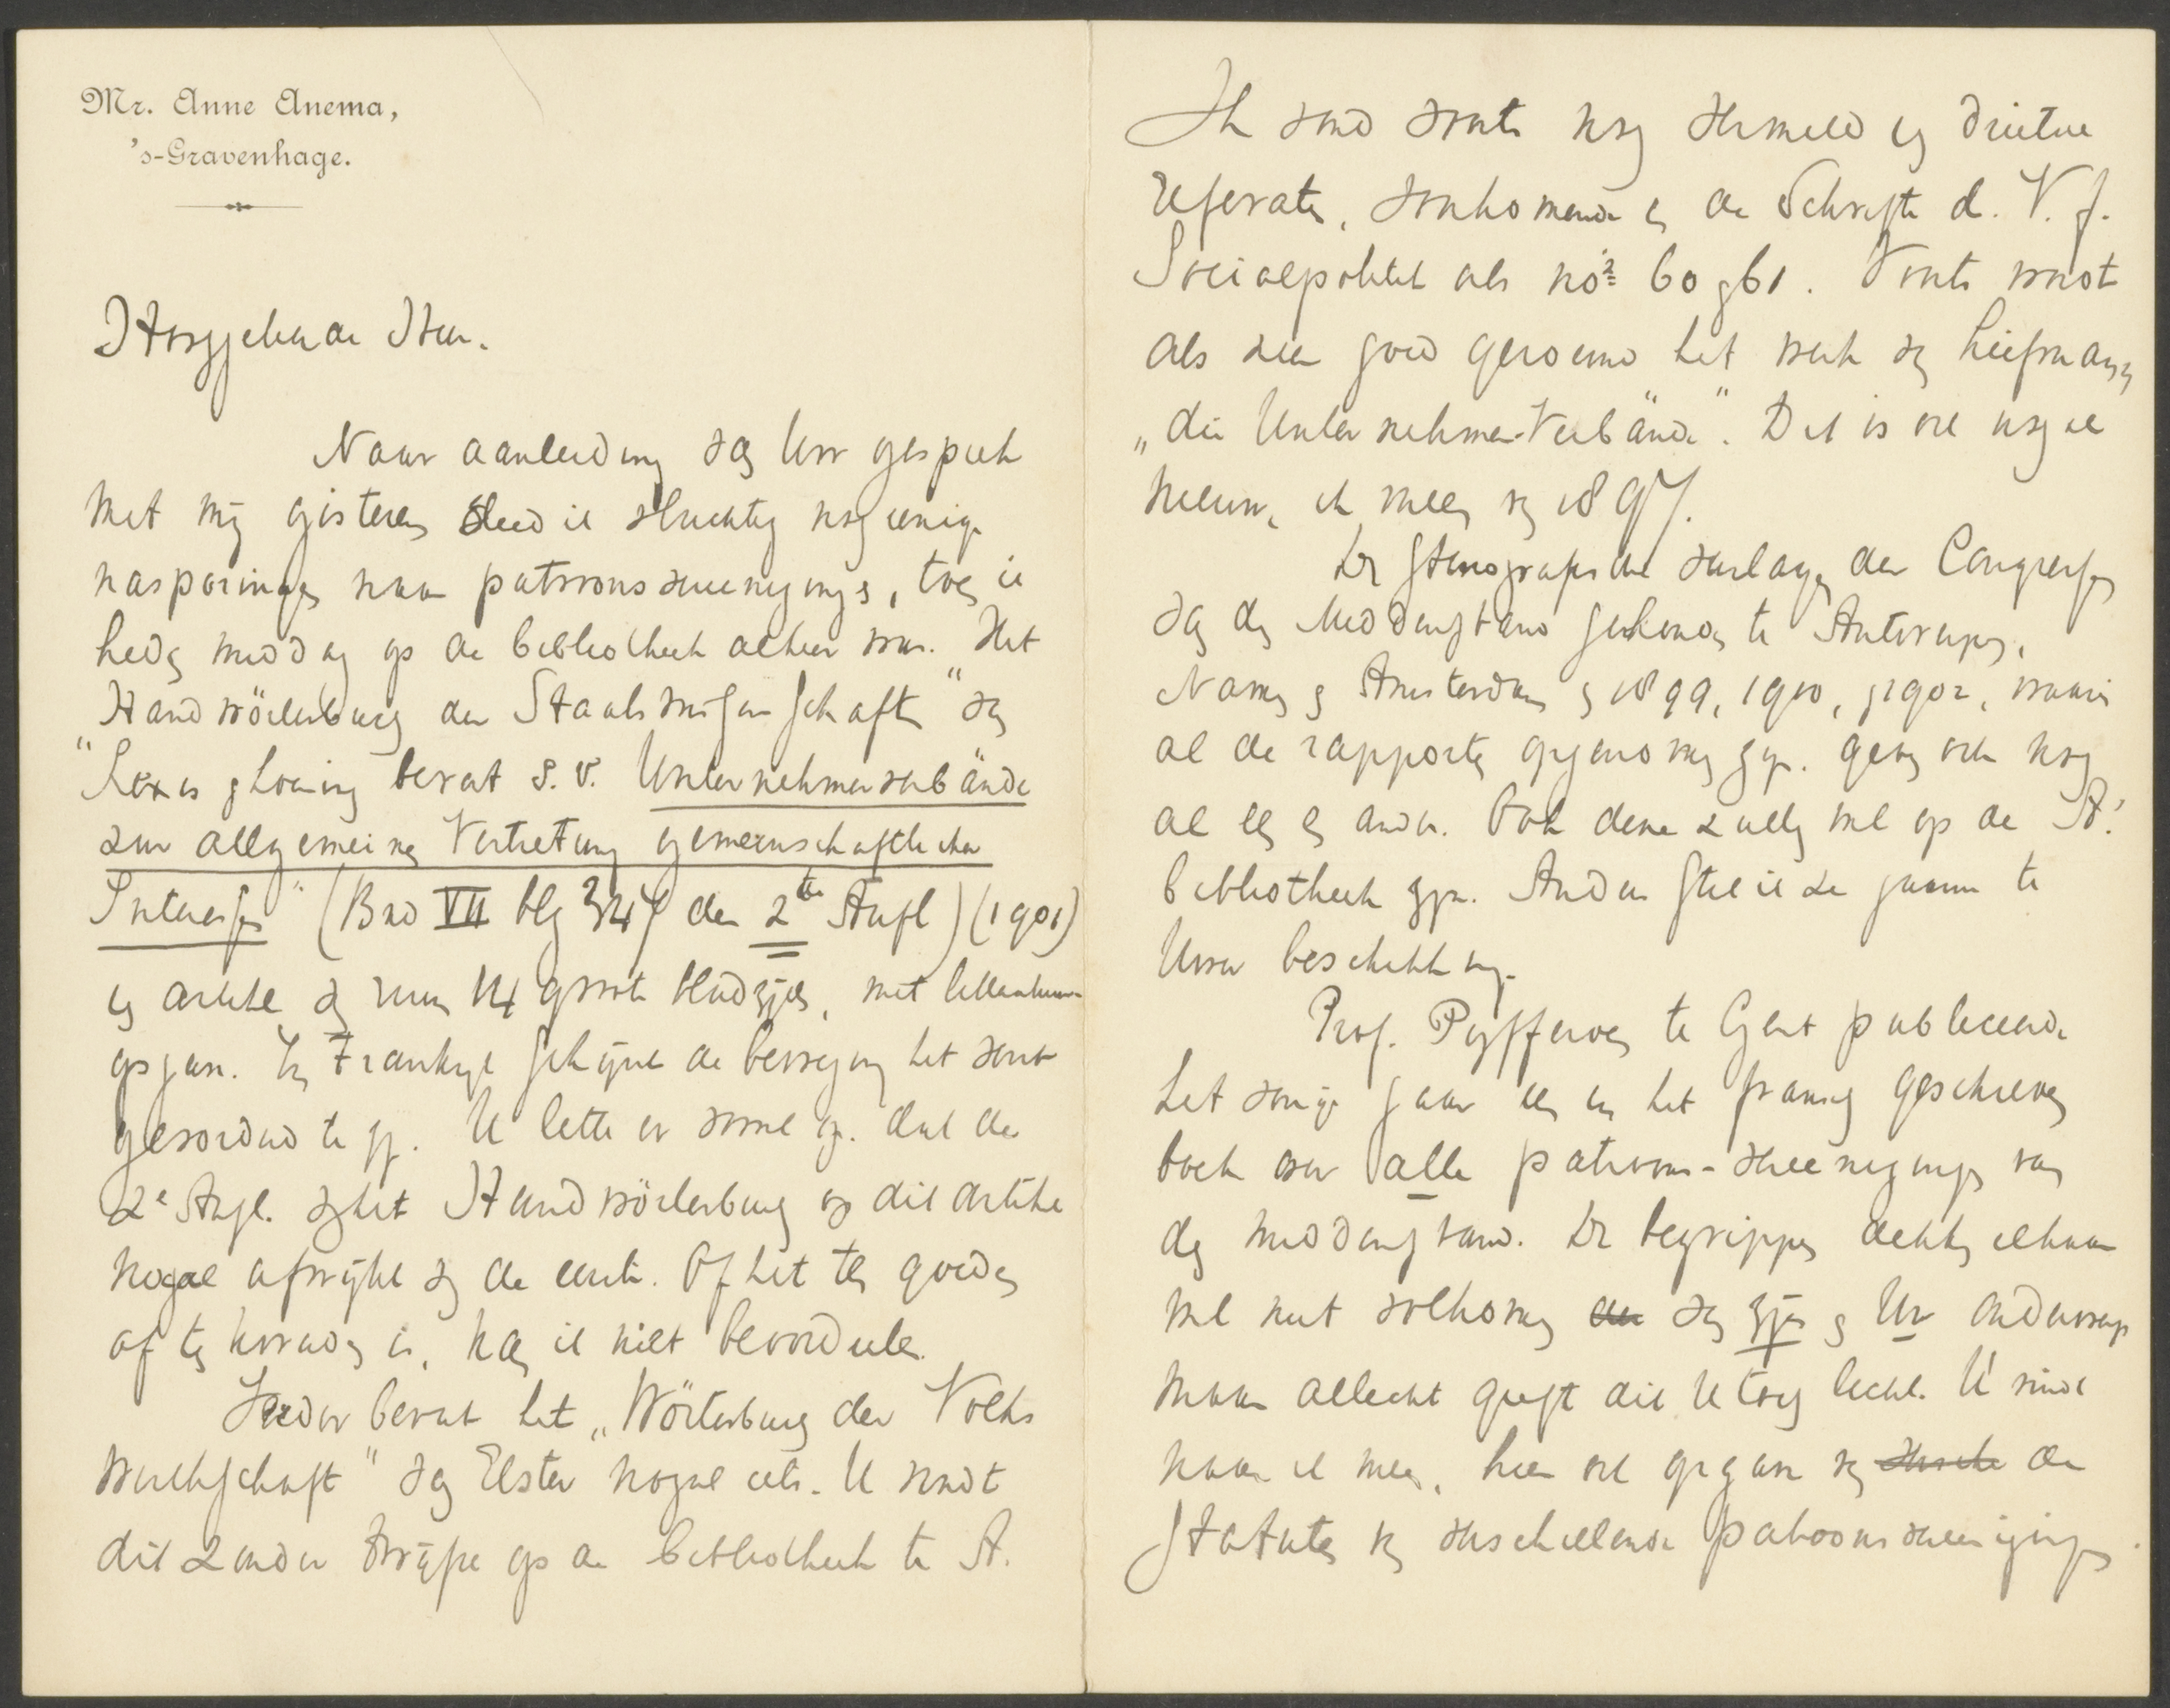 Mr. Anne Anema,
's-Gravenhage.
Hooggeleerde Heer.
Naar aanleiding van Uw gesprek
met mij gisteren deed ik vluchtig nog eenige
nasporingen naar patroonsvereenigingen, toen ik
heden middag op de bibliotheek alhier was. Het
Handwörterbuch der Staatswissenschaften" van
"Lexis & Loening bevat s.v. Unternehmerverbände
zur allgemeinen Vertretung gemeinschaftlicher
Interessen" (Bnd VII blg 347 der 2te Aufl) (1901)
een artikel van ruim 14 groote bladzijden, met litteratuur-
opgave. In Frankrijk schijnt de beweging het verst
gevorderd te zijn. U lette er vooral op, dat de
2e Aufl. van het Handwörterbuch op dit artikel
nogal afwijkt van de eerste. Of het ten goede
of ten kwade is, kan ik niet beoordeelen.
Verder bevat het „Wörterbuch der Volks
wirthschaft" van Elster nogal iets. U vindt
dit zonder twijfel op de bibliotheek te A.
Ik vond voorts nog vermeld een drietal
referaten, voorkomende in de Schriften d. V. f.
Socialpolitik als nos 60 & 61. Voorts wordt
als zeer goed geroemd het werk van Liefmann
„die Unternehmer-Verbände". Dit is ook nogal
nieuw, ik meen van 1897.
De stenografische verslagen der Congressen
van den Middenstand gehouden te Antwerpen,
Namen & Amsterdam in 1899, 1900, & 1902, waarin
al de rapporten opgenomen zijn, geven ook nog
al een en ander. Ook deze zullen wel op de A.
bibliotheek zijn. Anders stel ik ze gaarne te
Uwer beschikking.
Prof. Pyfferoen te Gent publiceerde
het vorige jaar een in het fransch geschreven
boek over alle patroons-vereenigingen van
den middenstand. De begrippen dekken elkaar
wel niet volkomen van zijn & Uw onderwerp
maar allicht geeft dit U toch licht. U vindt
naar ik meen, hier ook opgave van de
statuten van verschillende patroonsvereenigingen.